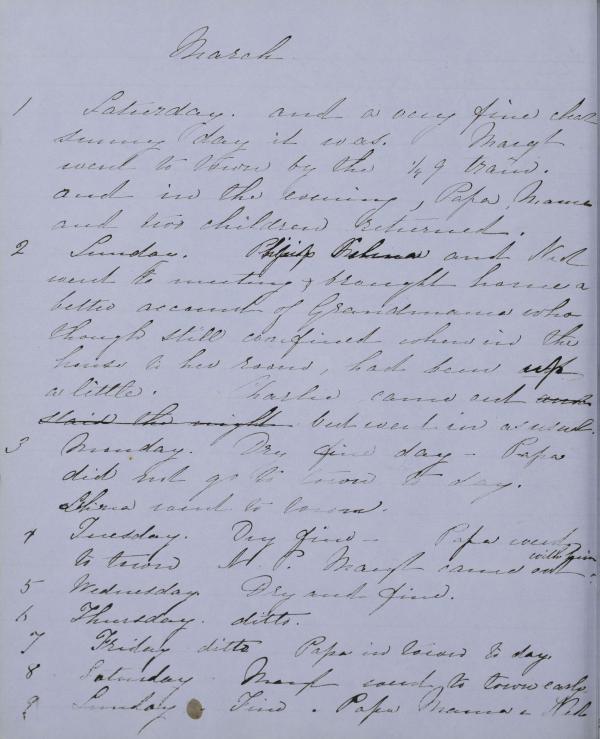 March
1 Saturday. and a very fine clear
sunny day it was. Margt
went to town by the 1/4 9 train.
and in the evening, Papa, Mama
and two children returned.
2 Sunday. and Ned
went to meeting & brought home a
better account of Grandmama who
though still confined when in the
house to her room, had been up
a little. Charlie came out and
staid the night but went in as usual.
3 Monday. Dry fine day - Papa
did not go to town to day.
went to town.
4 Tuesday. Dry fine - Papa went
to town M. P. Margt came out with him.
5 Wednesday Dry and fine.
6 Thursday. ditto.
7 Friday ditto Papa in town to day.
8 Saturday. Margt went to town early
9 Sunday. Fine. Papa Mama & Ned